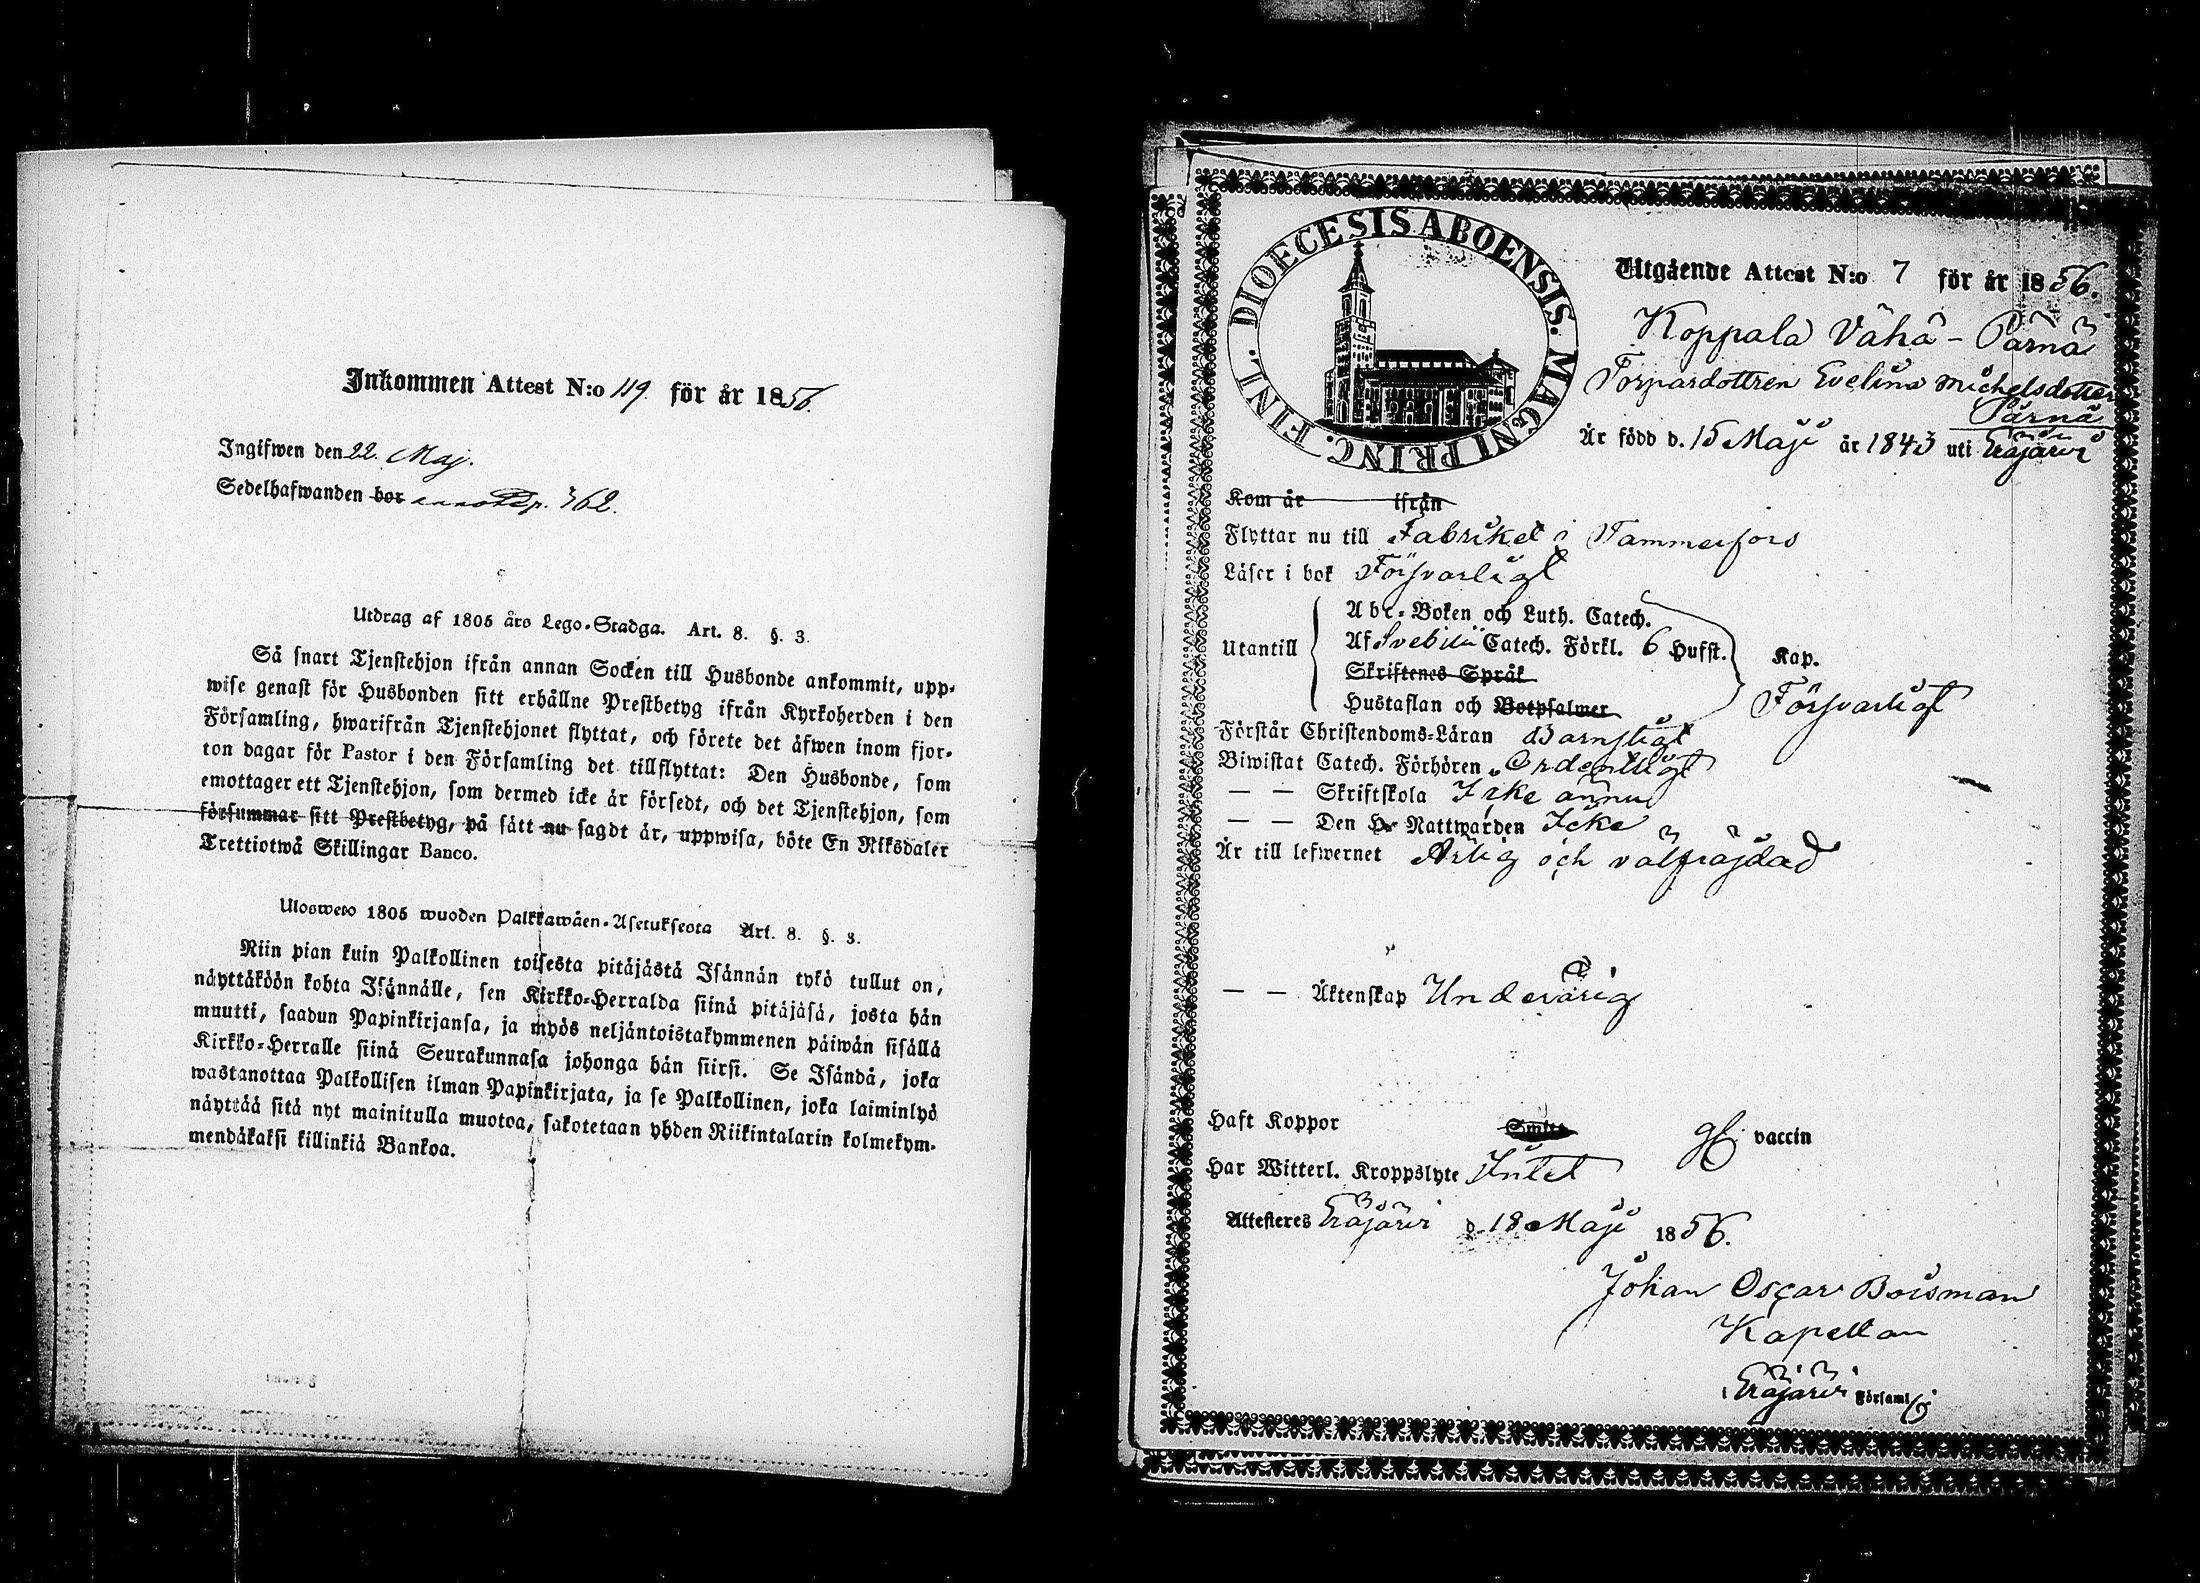 Inkommen Attest N:o 119. för år 1856.
Ingifwen den 22. Maj.
Sedelhafwanden bor p. 362.
Utdrag af 1805 års Lego-Stadga. Art. 8. §. 3.
Så snart Tjenstehjon ifrån annan Socken till Husbonde ankommit, upp-
wise genast för Husbonden sitt erhållne Prestbetyg ifrån Kyrkoherden i den
Församling, hwarifrån Tjenstehjonet flyttat, och förete det äfwen inom fjor-
ton dagar för Pastor i den Församling det tillflyttat: Den Husbonde, som
emottager ett Tjenstehjon, som dermed icke är försedt, och det Tjenstehjon, som
försummar sitt Prestbetyg, på sätt nu sagdt är, uppwisa, böte En Riksdaler
Trettiotwå Skillingar Banco.
Ulosweto 1805 wuoden Palkkawäen-Asetuksesta Art. 8. §. 3.
Niin pian kuin Palkollinen toisesta pitäjästä Isännän tykö tullut on,
näyttäköön kohta Isännälle, sen Kirkko-Herralda siinä pitäjäsä, josta hän
muutti, saadun Papinkirjansa, ja myös neljäntoistakymmenen päiwän sisällä
Kirkko-Herralle siinä Seurakunnasa johonga hän siirsi. Se Isändä, joka
wastanottaa Palkollisen ilman Papinkirjata, ja se Palkollinen, joka laiminlyö
näyttää sitä nyt mainitulla muotoa, sakotetaan yhden Riikintalarin kolmekym-
mendäkaksi killinkiä Bankoa.
FINL. DIOECESIS ABOENSIS. MAGNI PRINC.
Utgående Attest N:o 7 för år 1856.
Koppala Vähä-Pärnä
Torpardottren Evelina Michelsdotter
Pärnä
Är född d. 15 Maji år 1843 uti Eräjärvi
Kom år ifrån
Flyttar nu till Fabriket i Tammerfors
Läser i bok Försvarligt
Abc-Boken och Luth. Catech.
Utantill Af Svebilii Catech. Förkl. 6 Hufst. Kap.
Skriftenes Språk
Hustaflan och Botpsalmer Försvarligt
Förstår Christendoms-Läran Barnsligt
Biwistat Catech. Förhören Ordentligt
— — Skriftskola Icke ännu
— — Den H. Nattwarden Icke
Är till lefwernet Ärlig och välfräjdad
— — Äktenskap Underårig
Haft Koppor Smitt vaccin
Har Witterl. Kroppslyte Intet
Attesteres Eräjärvi d. 18 Maji 1856.
Johan Oscar Boisman
Kapellan
i Eräjärvi Församl.